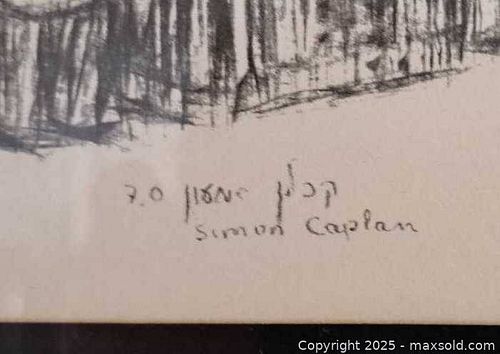 קפלן שמעון ס.ד
Simon Caplan
Copyright © 2025 - maxsold.com